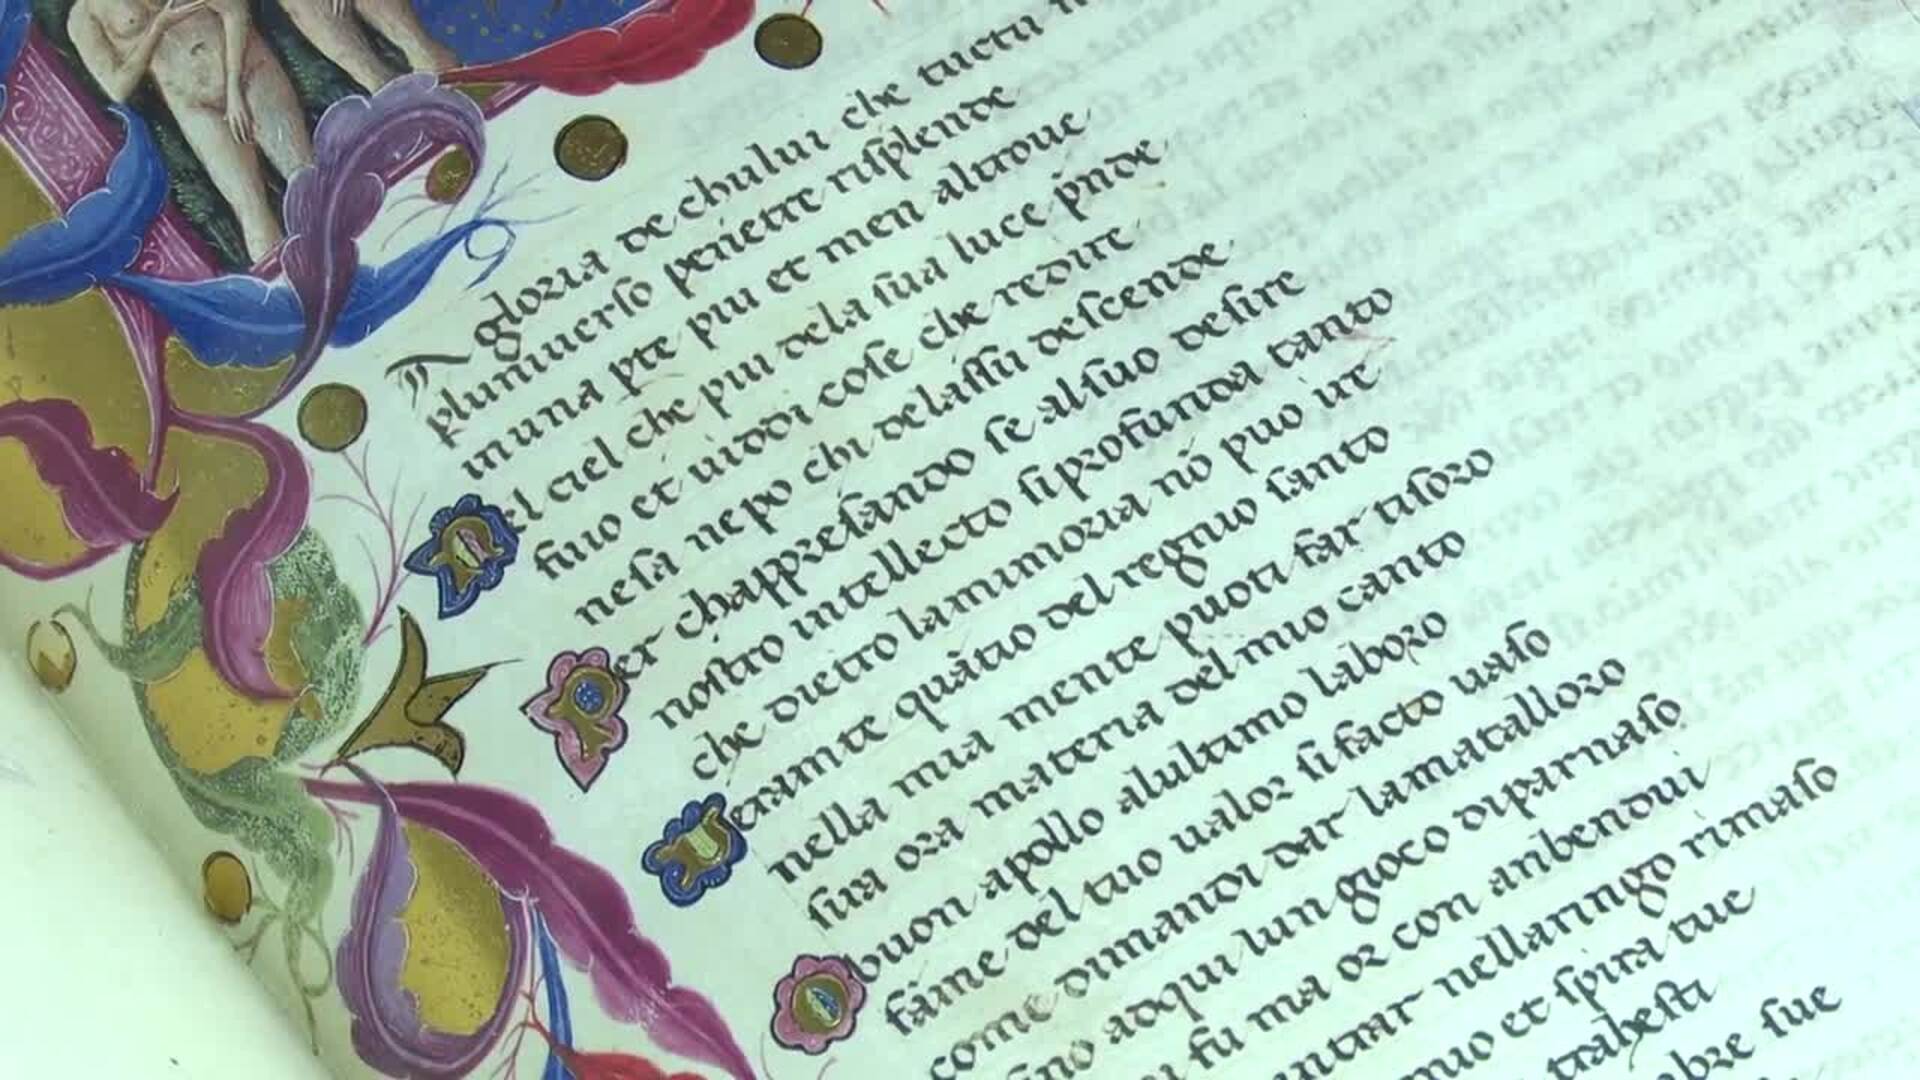 gloria de chului che tuctu
pluniuerso penetre risplende
inuna pte piu et men altroue
el ciel che piu dela sua luce pnde
fuio et uiddi cose che redire
nesa ne po chi delassu descende
er chappresando se alsuo desire
nostro intellecto siprofunda tanto
che dietro lamimoria nō puo ire
eramte quātio del regnio santo
nella mia mente puoti far tisoro
sira ora materia del mio canto
buon apollo alultimo laboro
fāme del tuo ualor sifacto uaso
come dimandi dar lamatalloro
ino adqui lun gioco diparnaso
fu ma or con anbendui
untrar nellaringo rimaso
mio et spira tue
trahesti
bre sue